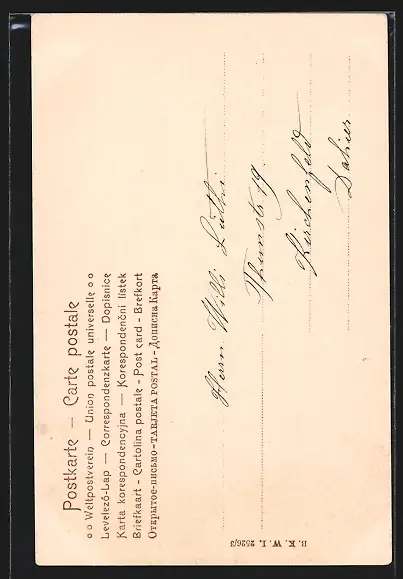 Postkarte — Carte postale
o o Weltpostverein — Union postale universelle o o
Levelező-Lap — Correspondenzkarte — Dopisnice
Karta korespondencyjna — Korespondenční lístek
Briefkaart - Cartolina postale - Post card - Brefkort
Открытое-письмо-TARJETA POSTAL-Дописна Карта
Herrn Willi Lüthi
Thunstr. 19
Kirchenfeld
Dahier
B. K. W. I. 2526/3